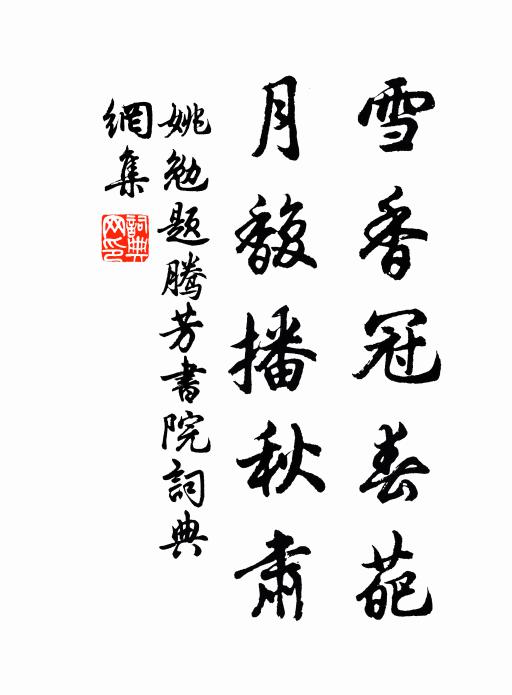 雪香冠春葩
月馥播秋肅
姚勉題騰芳書院詞典
網集
詞典網印